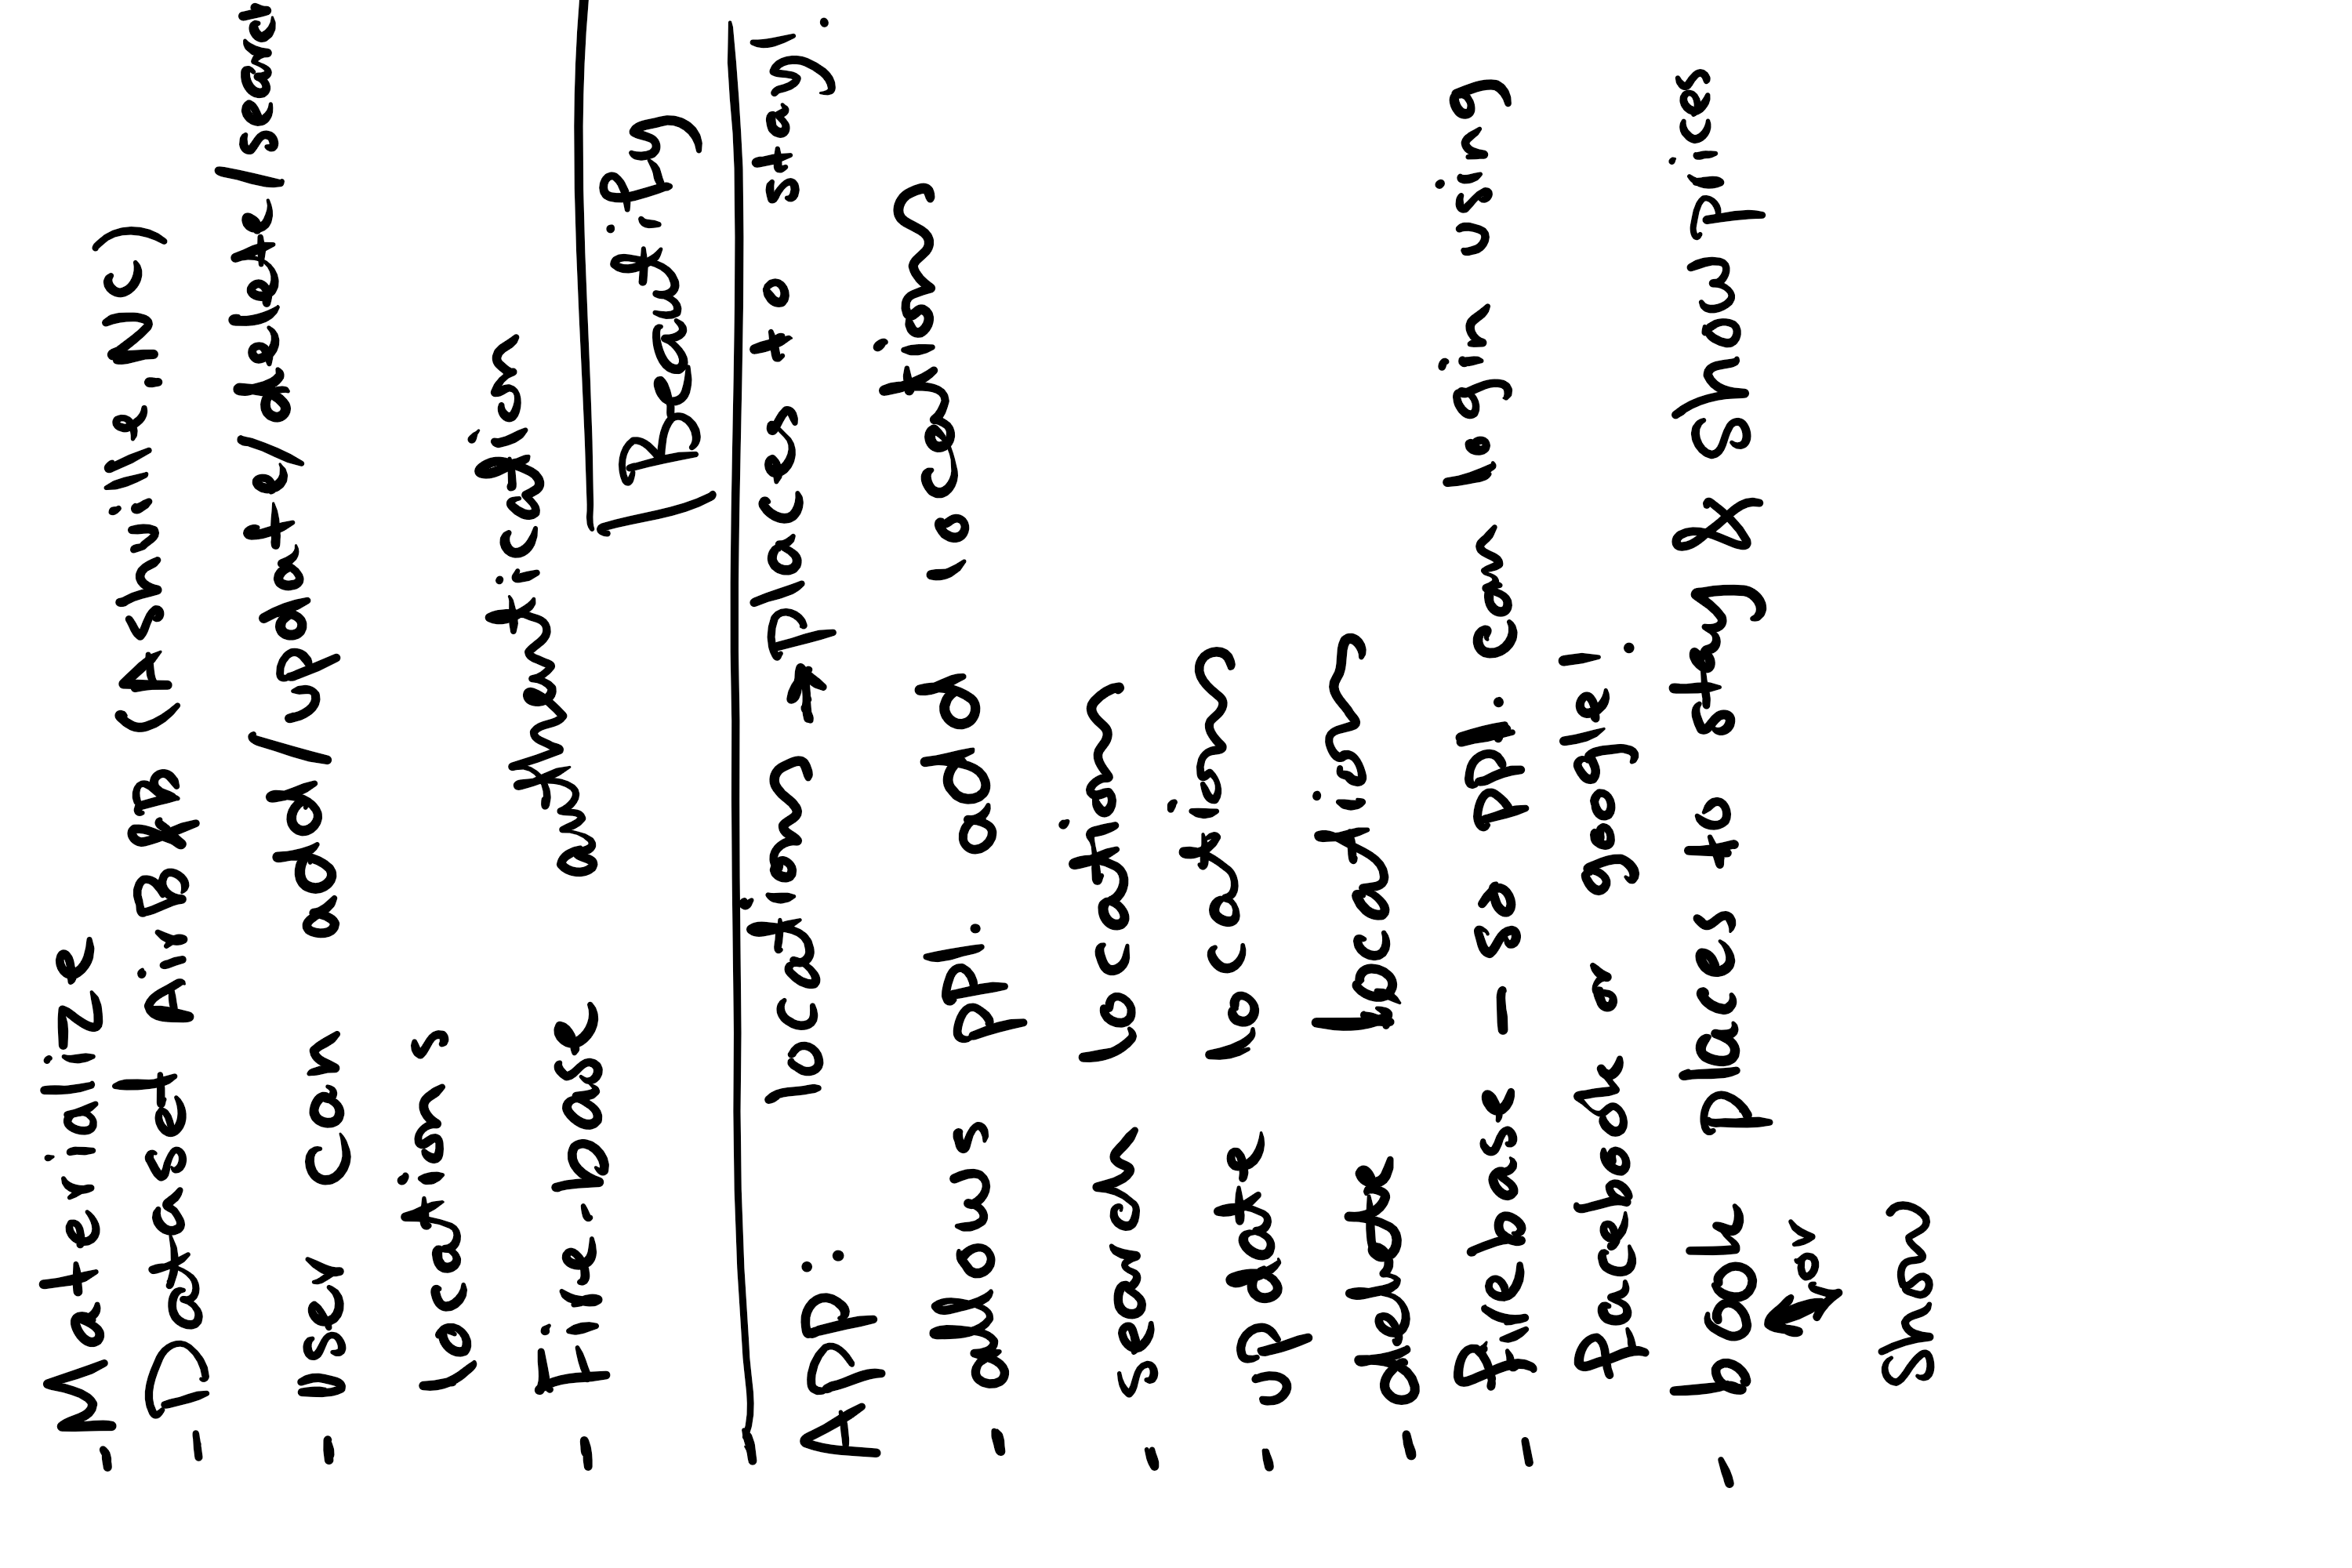 - Materialize
- Dataset Air B n B (Ashville, NC)
- user can add / update / delete / search
locations
- Firebase authentication
Beautify
API: location → places to stay.
- allows ppl. add location
- search location
- update location
- delete location
- Firebase - so ppl. can login using
facebook or google!
- book places to stay & show prices
air
show